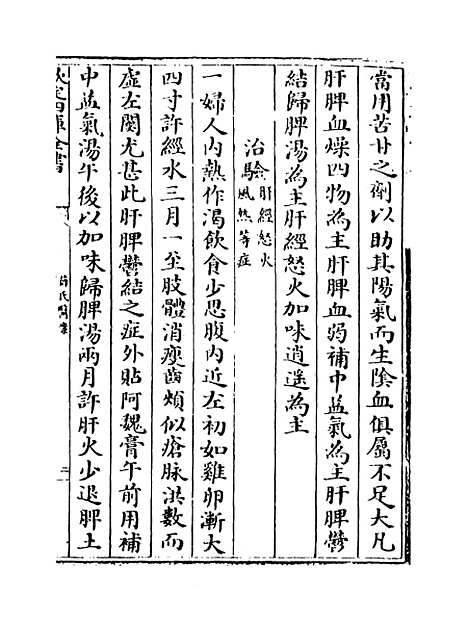 當用苦甘之劑以助其陽氣而生陰血俱屬不足大凡
肝脾血燥四物為主肝脾血弱補中益氣為主肝脾鬱
結歸脾湯為主肝經怒火加味逍遥為主
治驗肝經怒火
風熱等症
一婦人内熱作渴飲食少思腹内近左初如雞卵漸大
四寸許經水三月一至肢體消瘦齒頰似瘡脉洪數而
虚左關尤甚此肝脾鬱結之症外貼阿魏膏午前用補
中益氣湯午後以加味歸脾湯兩月許肝火少退脾土
欽定四庫全書
薛氏醫案